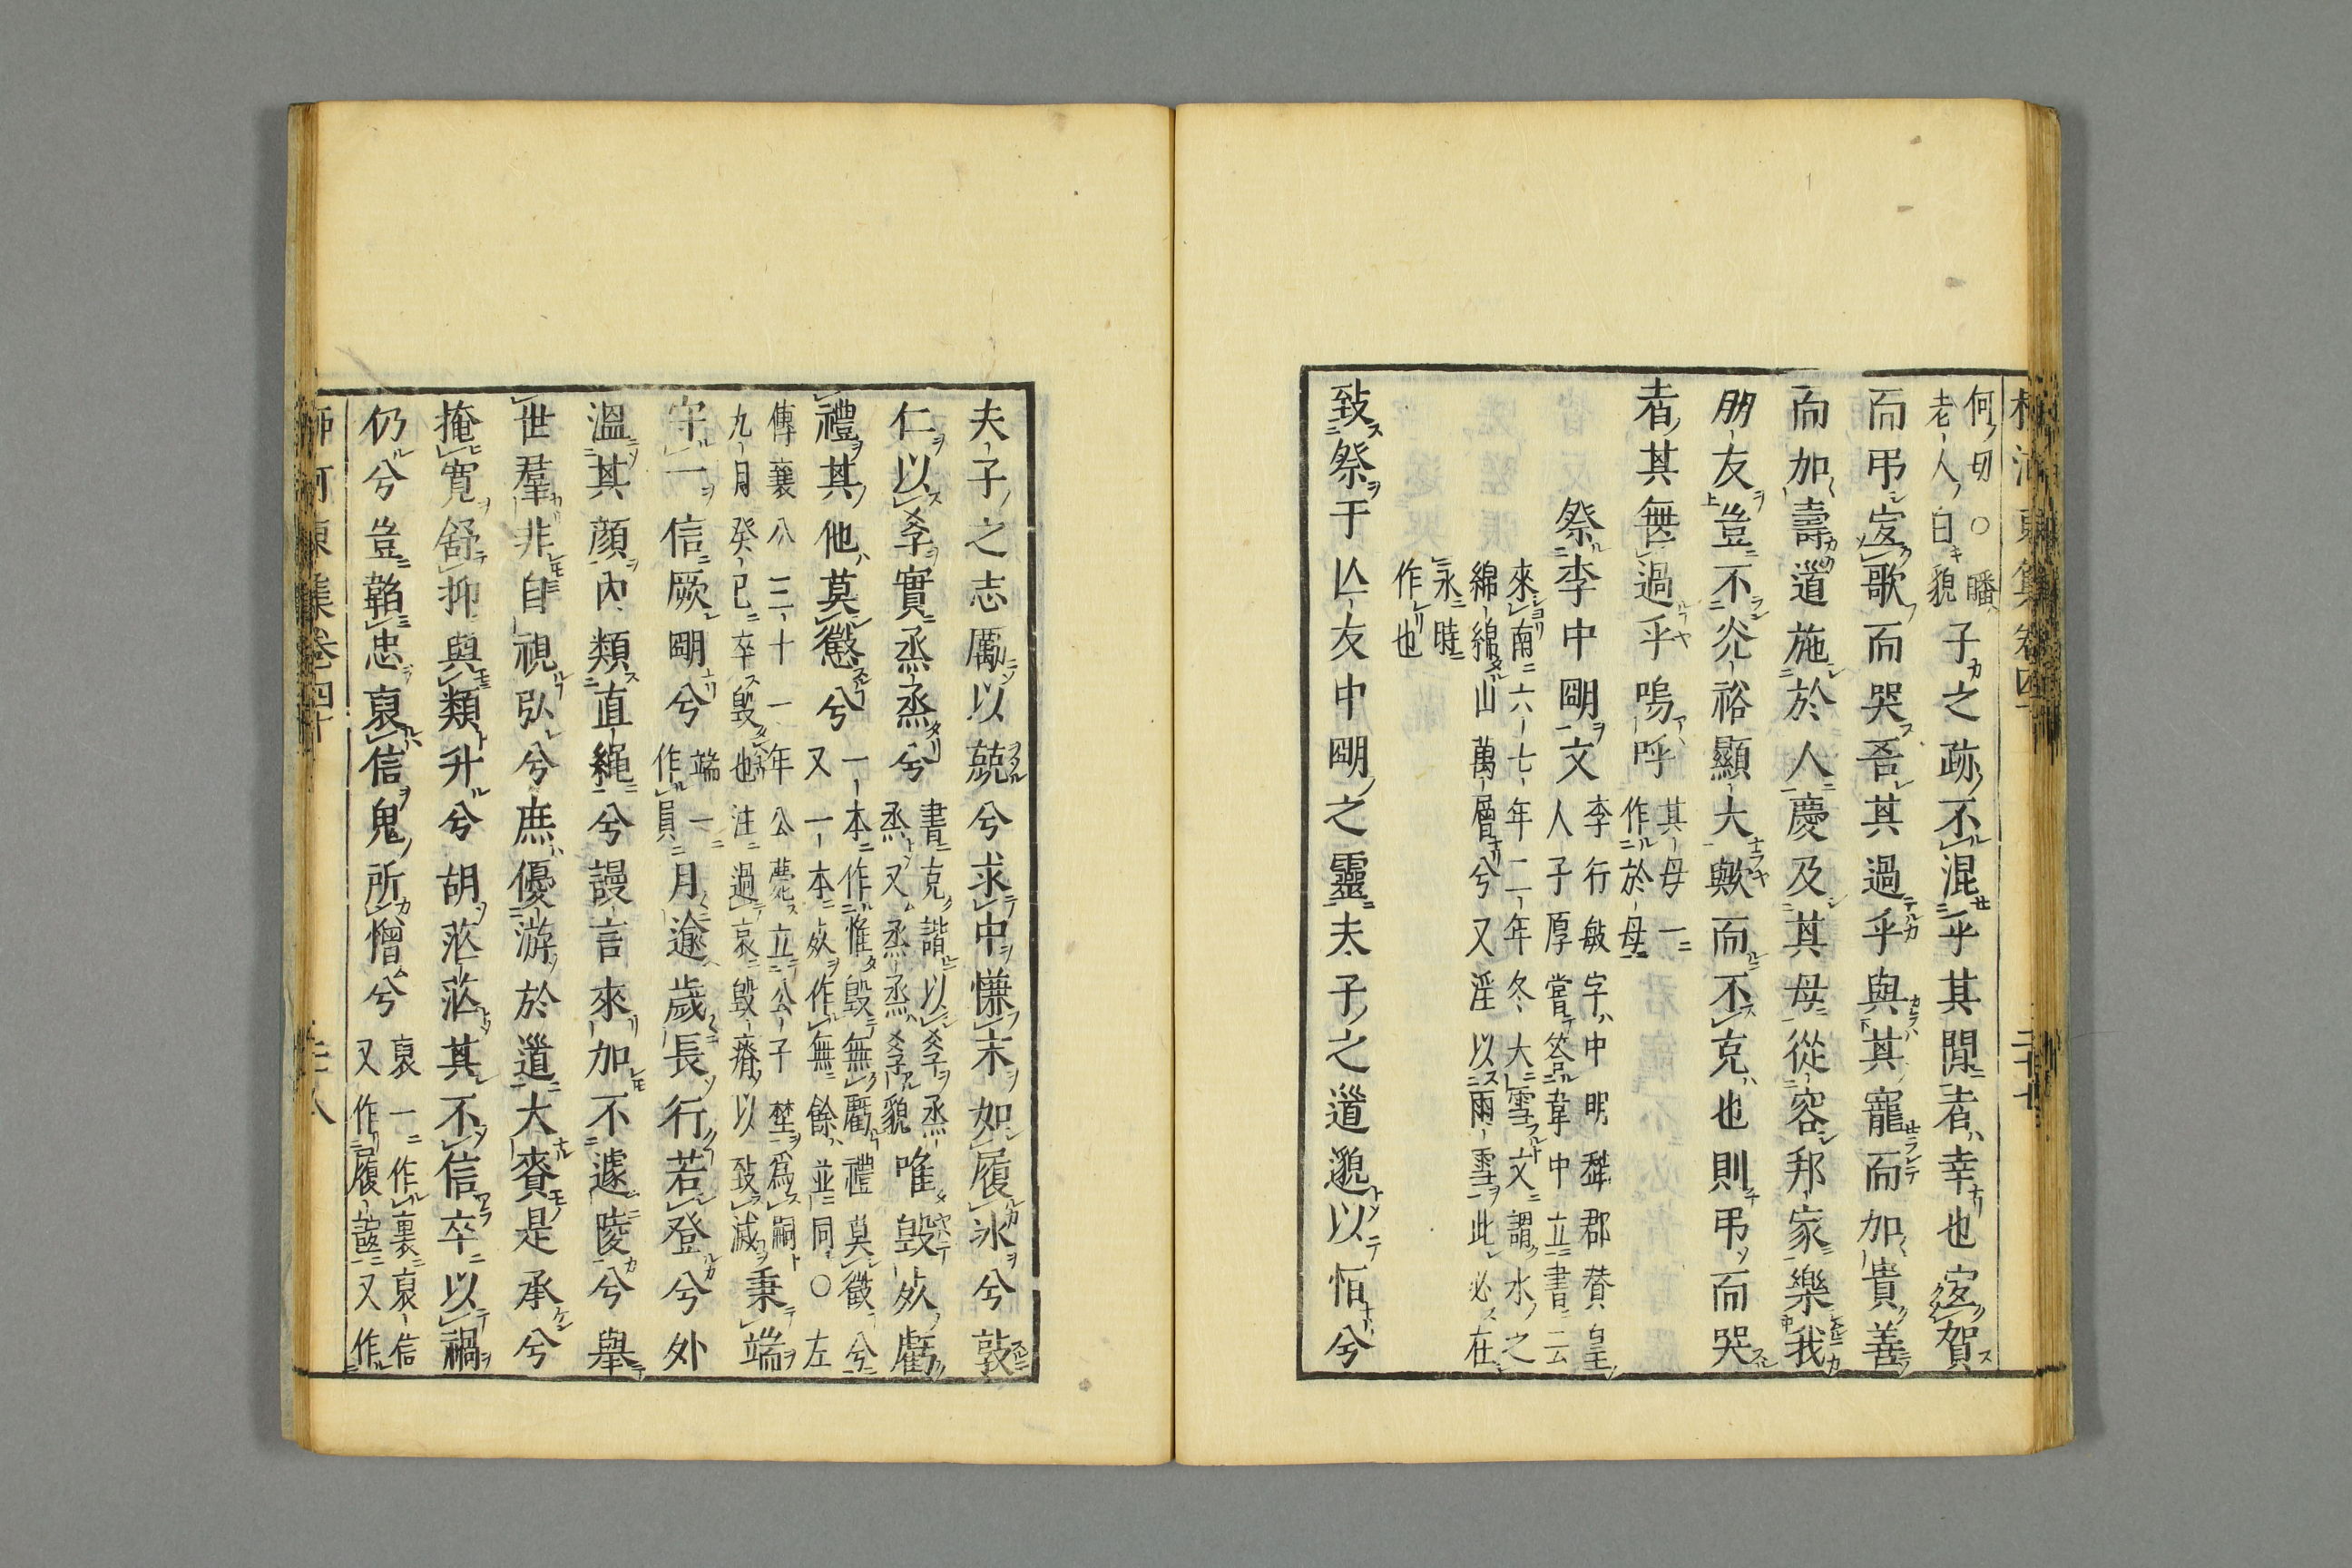 何切○皤
老人白貌
子之跡不混乎其間者幸也宜賀
而弔宜歌而哭吾其過乎與其寵而加貴善
而加壽道施於人慶及其母從容邦家樂我
朋友豈不光裕顯大歟而不克也則弔而哭
者其無過乎嗚呼
其母一
作於母
祭李中明文
李行敏字中明犛郡賛皇
人子厚嘗答韋中立書云
來南六七年二年冬大雪文謂水之
綿綿山萬層兮又淫以雨雪此必在
永時
作也
致祭于亡友中明之靈夫子之道邈以怕兮
夫子之志厲以兢兮求中慊末如履氷兮敦
仁以孝實烝烝兮
書克諧以孝烝
烝又烝烝孝貌
唯毀㱙虧
禮其他莫愆兮
一本作惟毀無虧禮莫徵兮
又一本㱙作無餘並同○左
傳襄公三十一年公薨立公子埜爲嗣
九月癸巳卒毀也注過哀毀瘠以致滅
秉端
守一信厥明兮
端一
作員
月逾歲長行若登兮外
溫其顔内類直繩兮謾言來加不遽陵兮舉
世羣非自視弘兮庶優游於道大賚是承兮
掩寬舒抑與類升兮胡茫茫其不信卒以禍
仍兮豈韜忠裒信鬼所憎兮
裒一作裏裒信
又作履謚又作
柳河東集卷四十
二十七
柳河東集卷四十
二十八